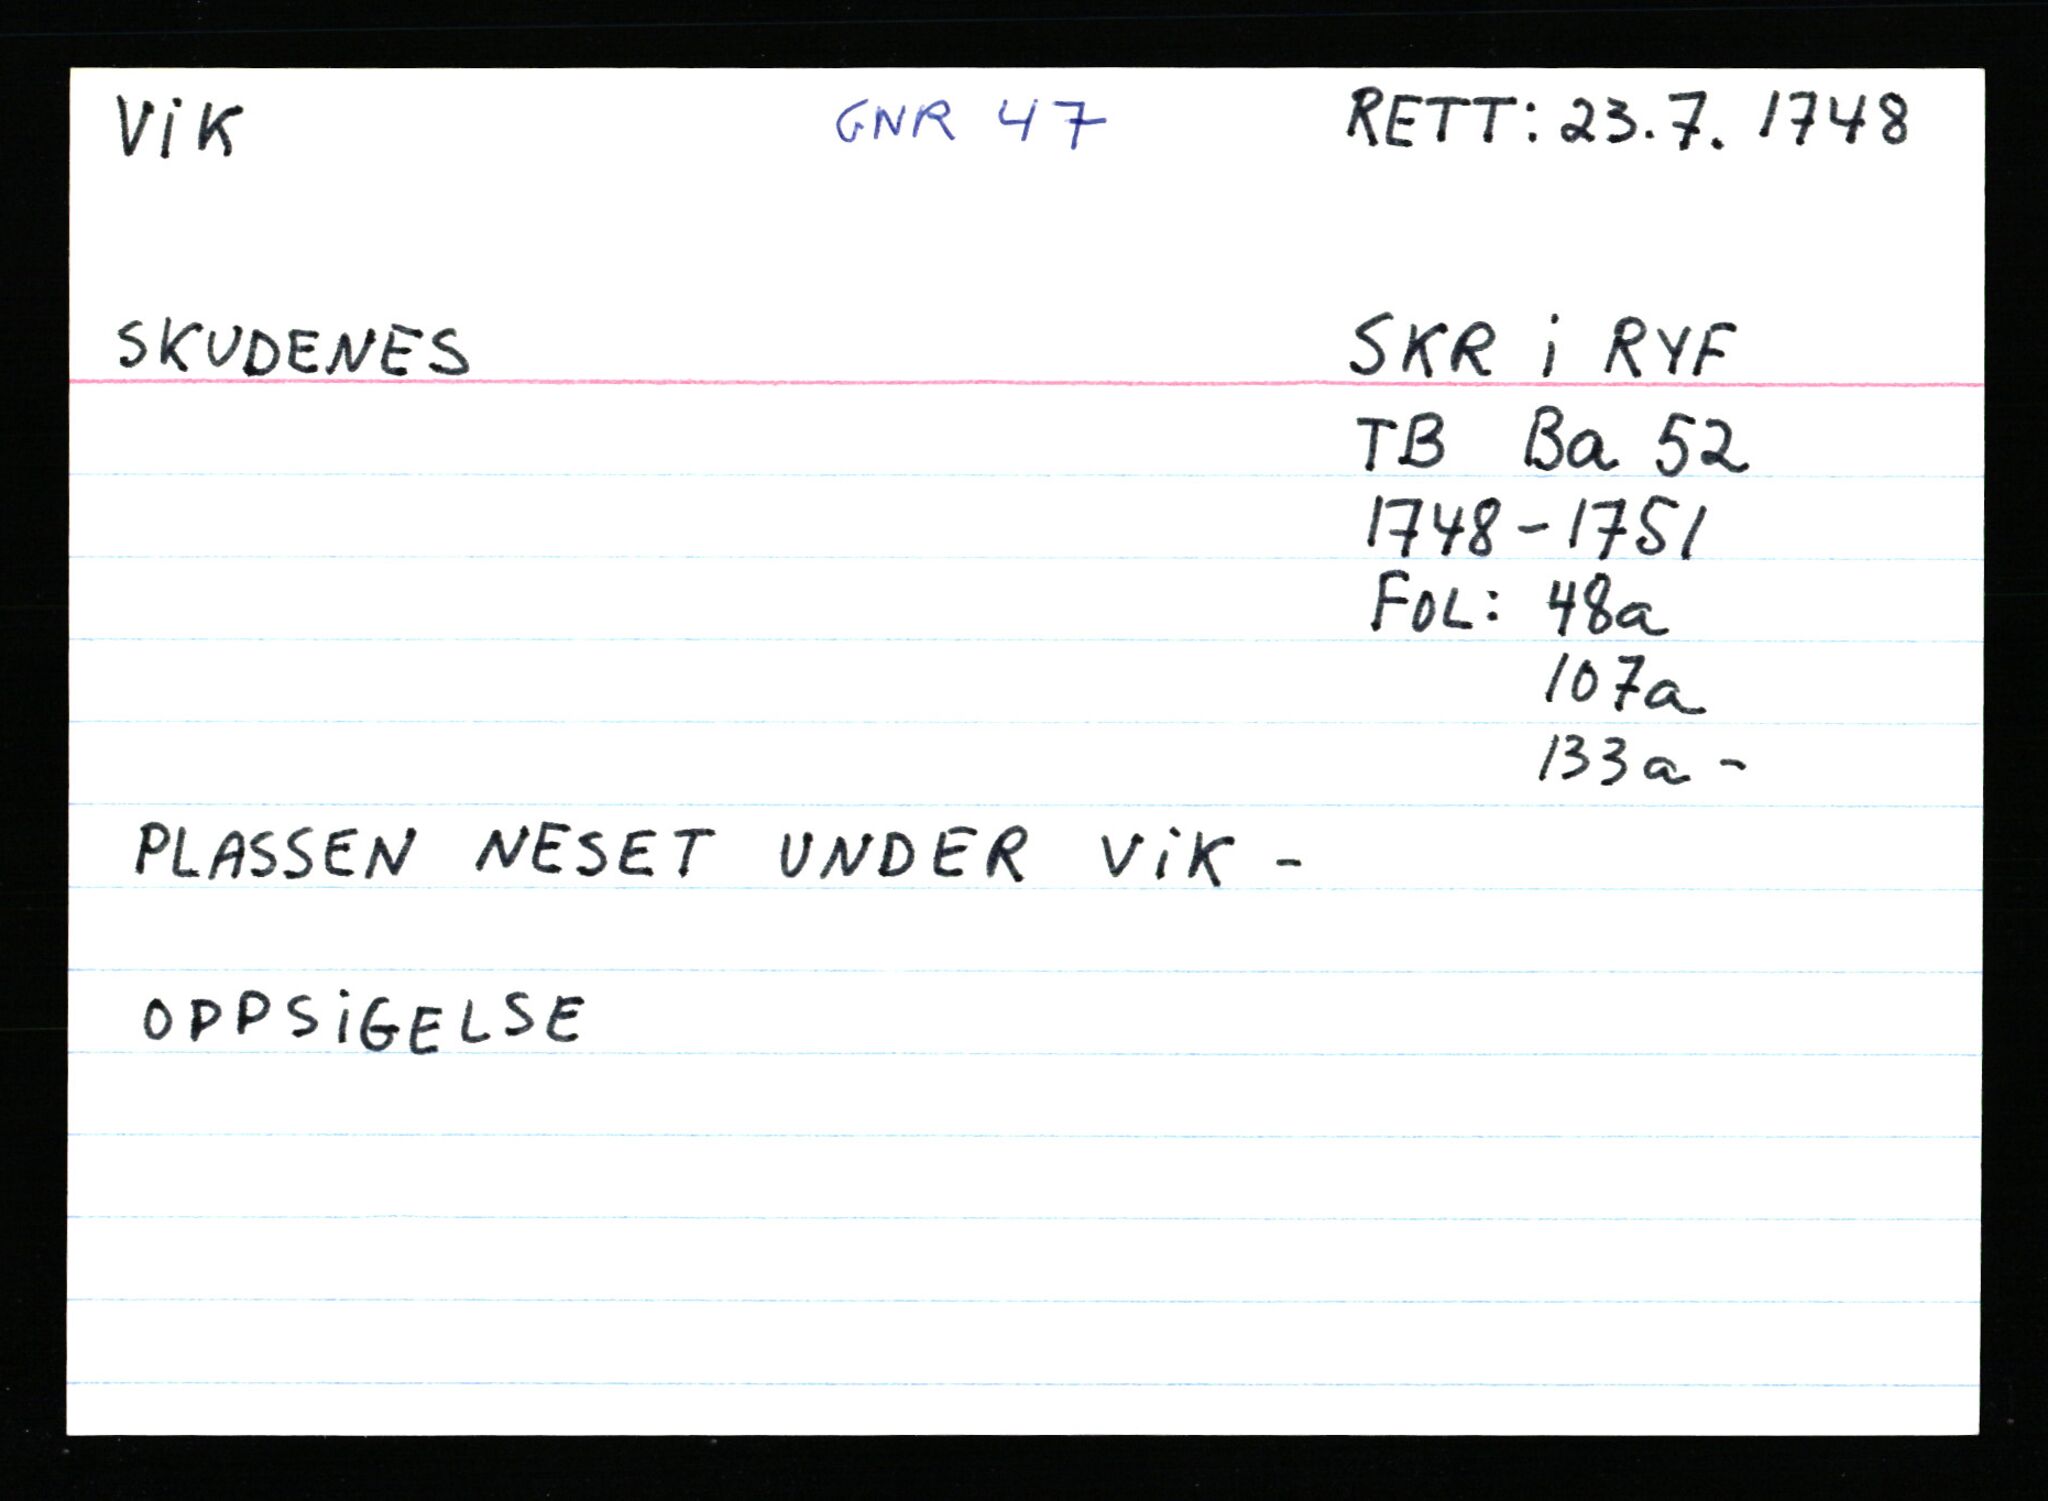 ViK GNR 47 RETT: 23.7. 1748
SKUDENES SKR i RYF
TB Ba 52
1748-1751
FOL: 48a
107a
133a -
PLASSEN NESET UNDER ViK -
OPPSiGELSE